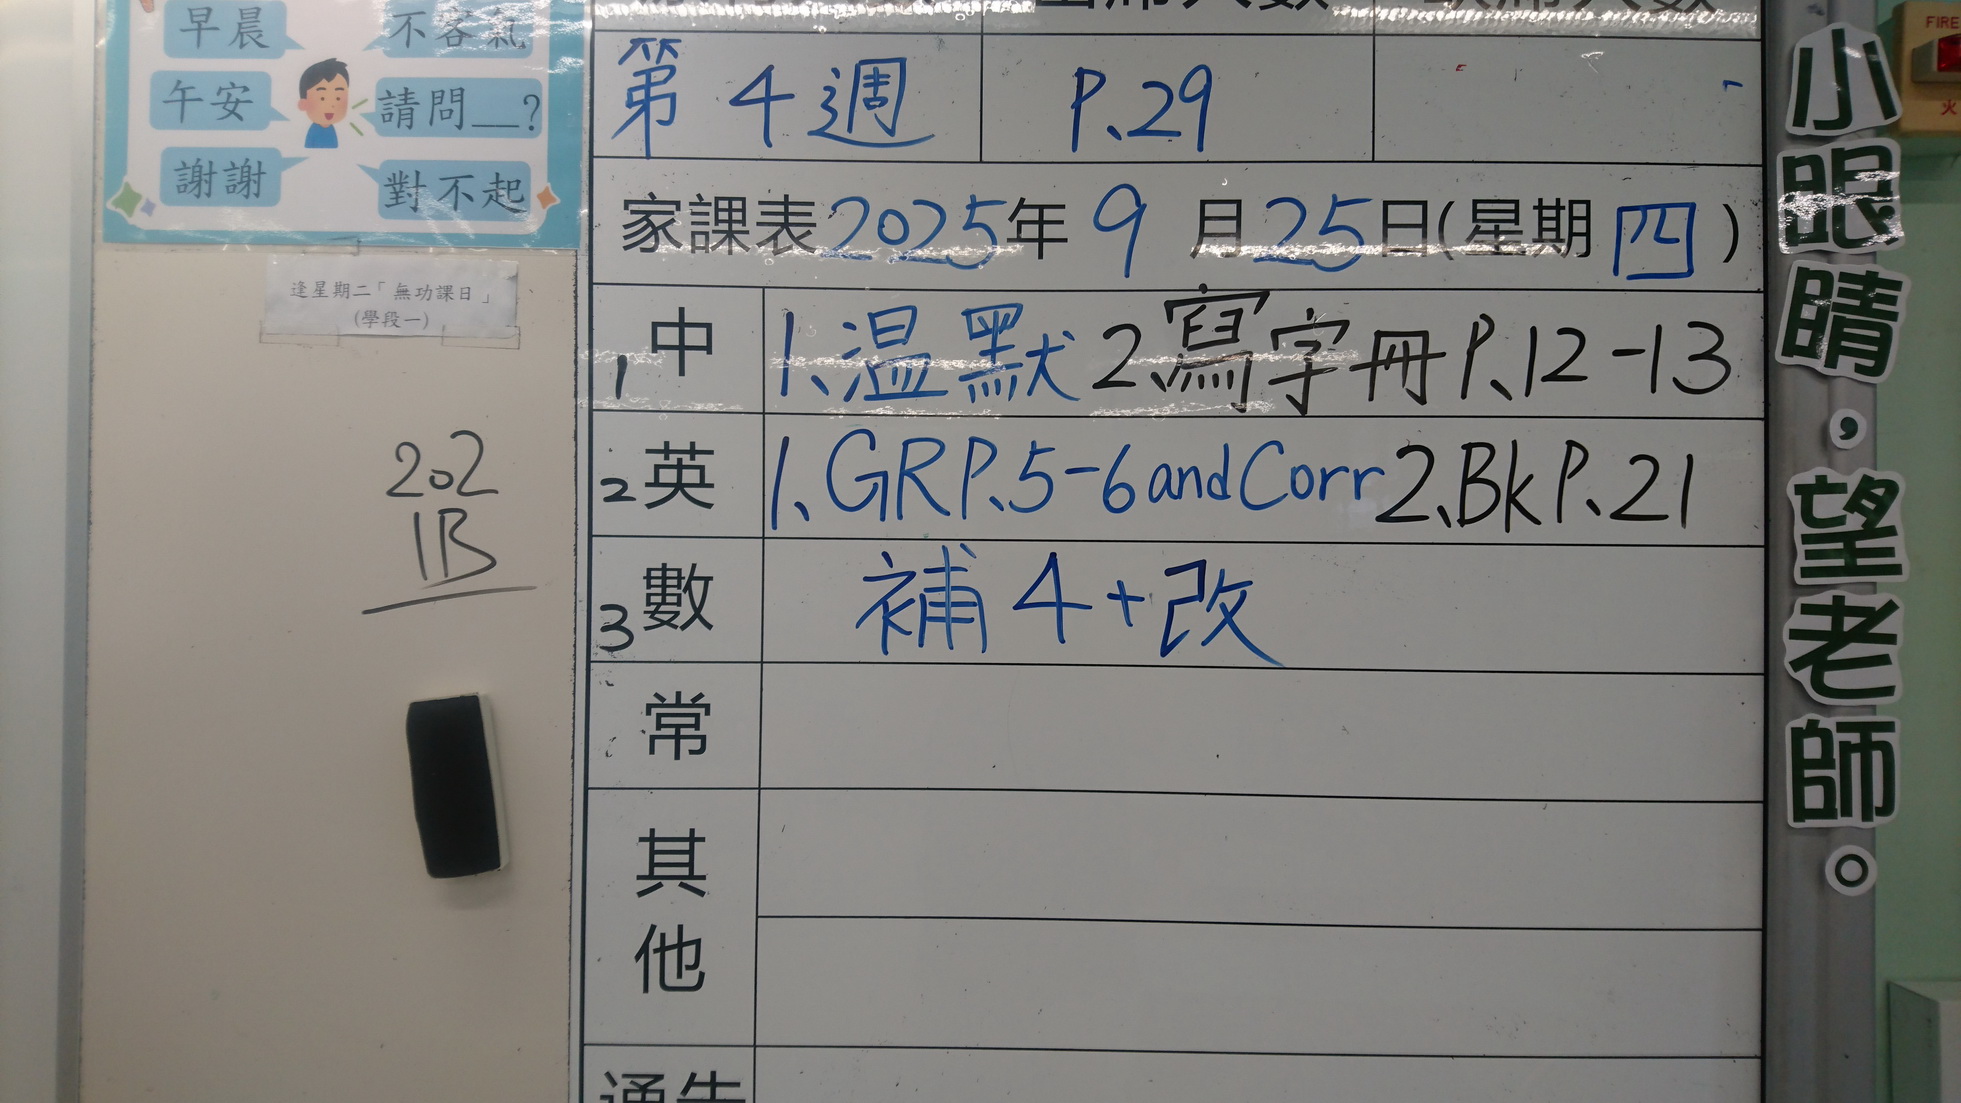 早晨
不客氣
午安
請問__?
謝謝
對不起
逢星期二「無功課日」
(學段一)
202
1B
第4週 P.29
家課表2025年9月25日(星期四)
1 中 1、溫默 2、寫字冊P、12-13
2 英 1、GRP、5-6andCorr 2、BkP、21
3 數 補4+改
常
其他
通告
小眼睛,望老師。
FIRE
火